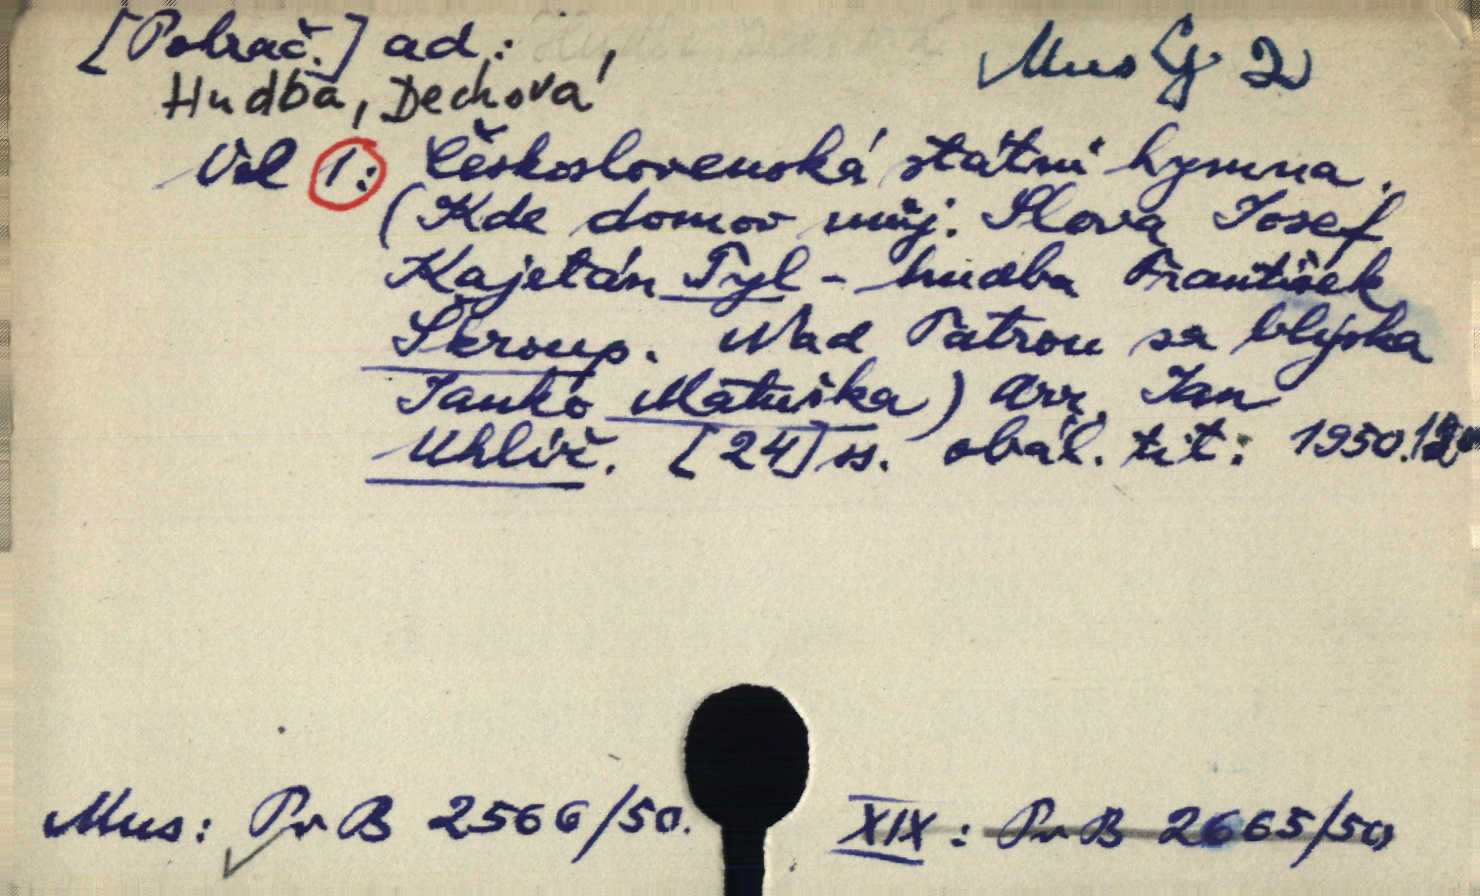 [Pokrač.] ad:
Mus G 2
Hudba, Dechová
Vol 1: Československá státní hymna.
(Kde domov můj. Slova Josef
Kajetán Tyl - hudba František
Škroup. Nad Tatrou sa blýska
Janko Matuška) Arr. Jan
Uhlíř. [24] ss. obál. tit: 1950.
Mus: Pr B 2566/50.
XIX: Pr B 2665/50